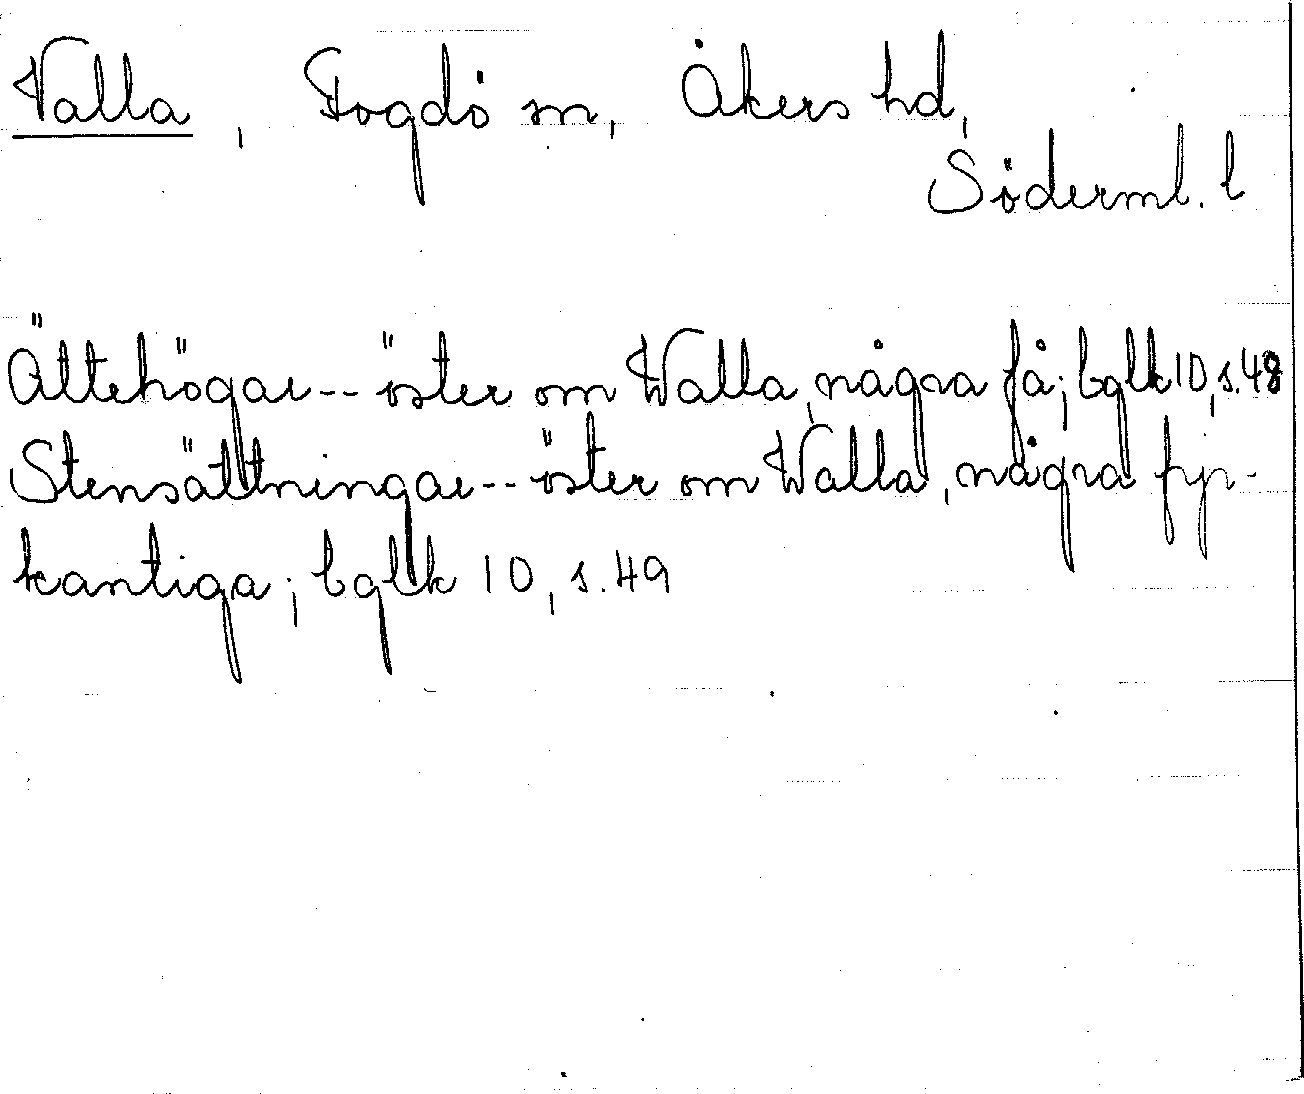 Valla, Fogdö sn, Åkers hd,
Söderml. l
Ättehögar -- öster om Walla, några få; bglk 10, s. 48
Stensättningar -- öster om Walla, några fyr-
kantiga; bglk 10, s. 49